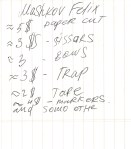 Mashkov Felix
≈5$ paper cut
≈3.8$ - sissars
≈3 - bows
≈3$ - Trap
≈2$ Tape
≈4$ - markers.
and some othe